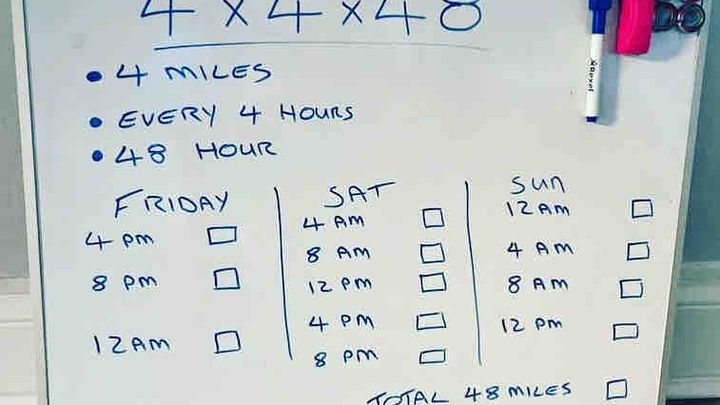 4 x 4 x 48
• 4 MILES
• EVERY 4 HOURS
• 48 HOUR
FRIDAY
4 PM
8 PM
12 AM
SAT
4 AM
8 AM
12 PM
4 PM
8 PM
SUN
12 AM
4 AM
8 AM
12 PM
TOTAL 48 MILES
Rexel